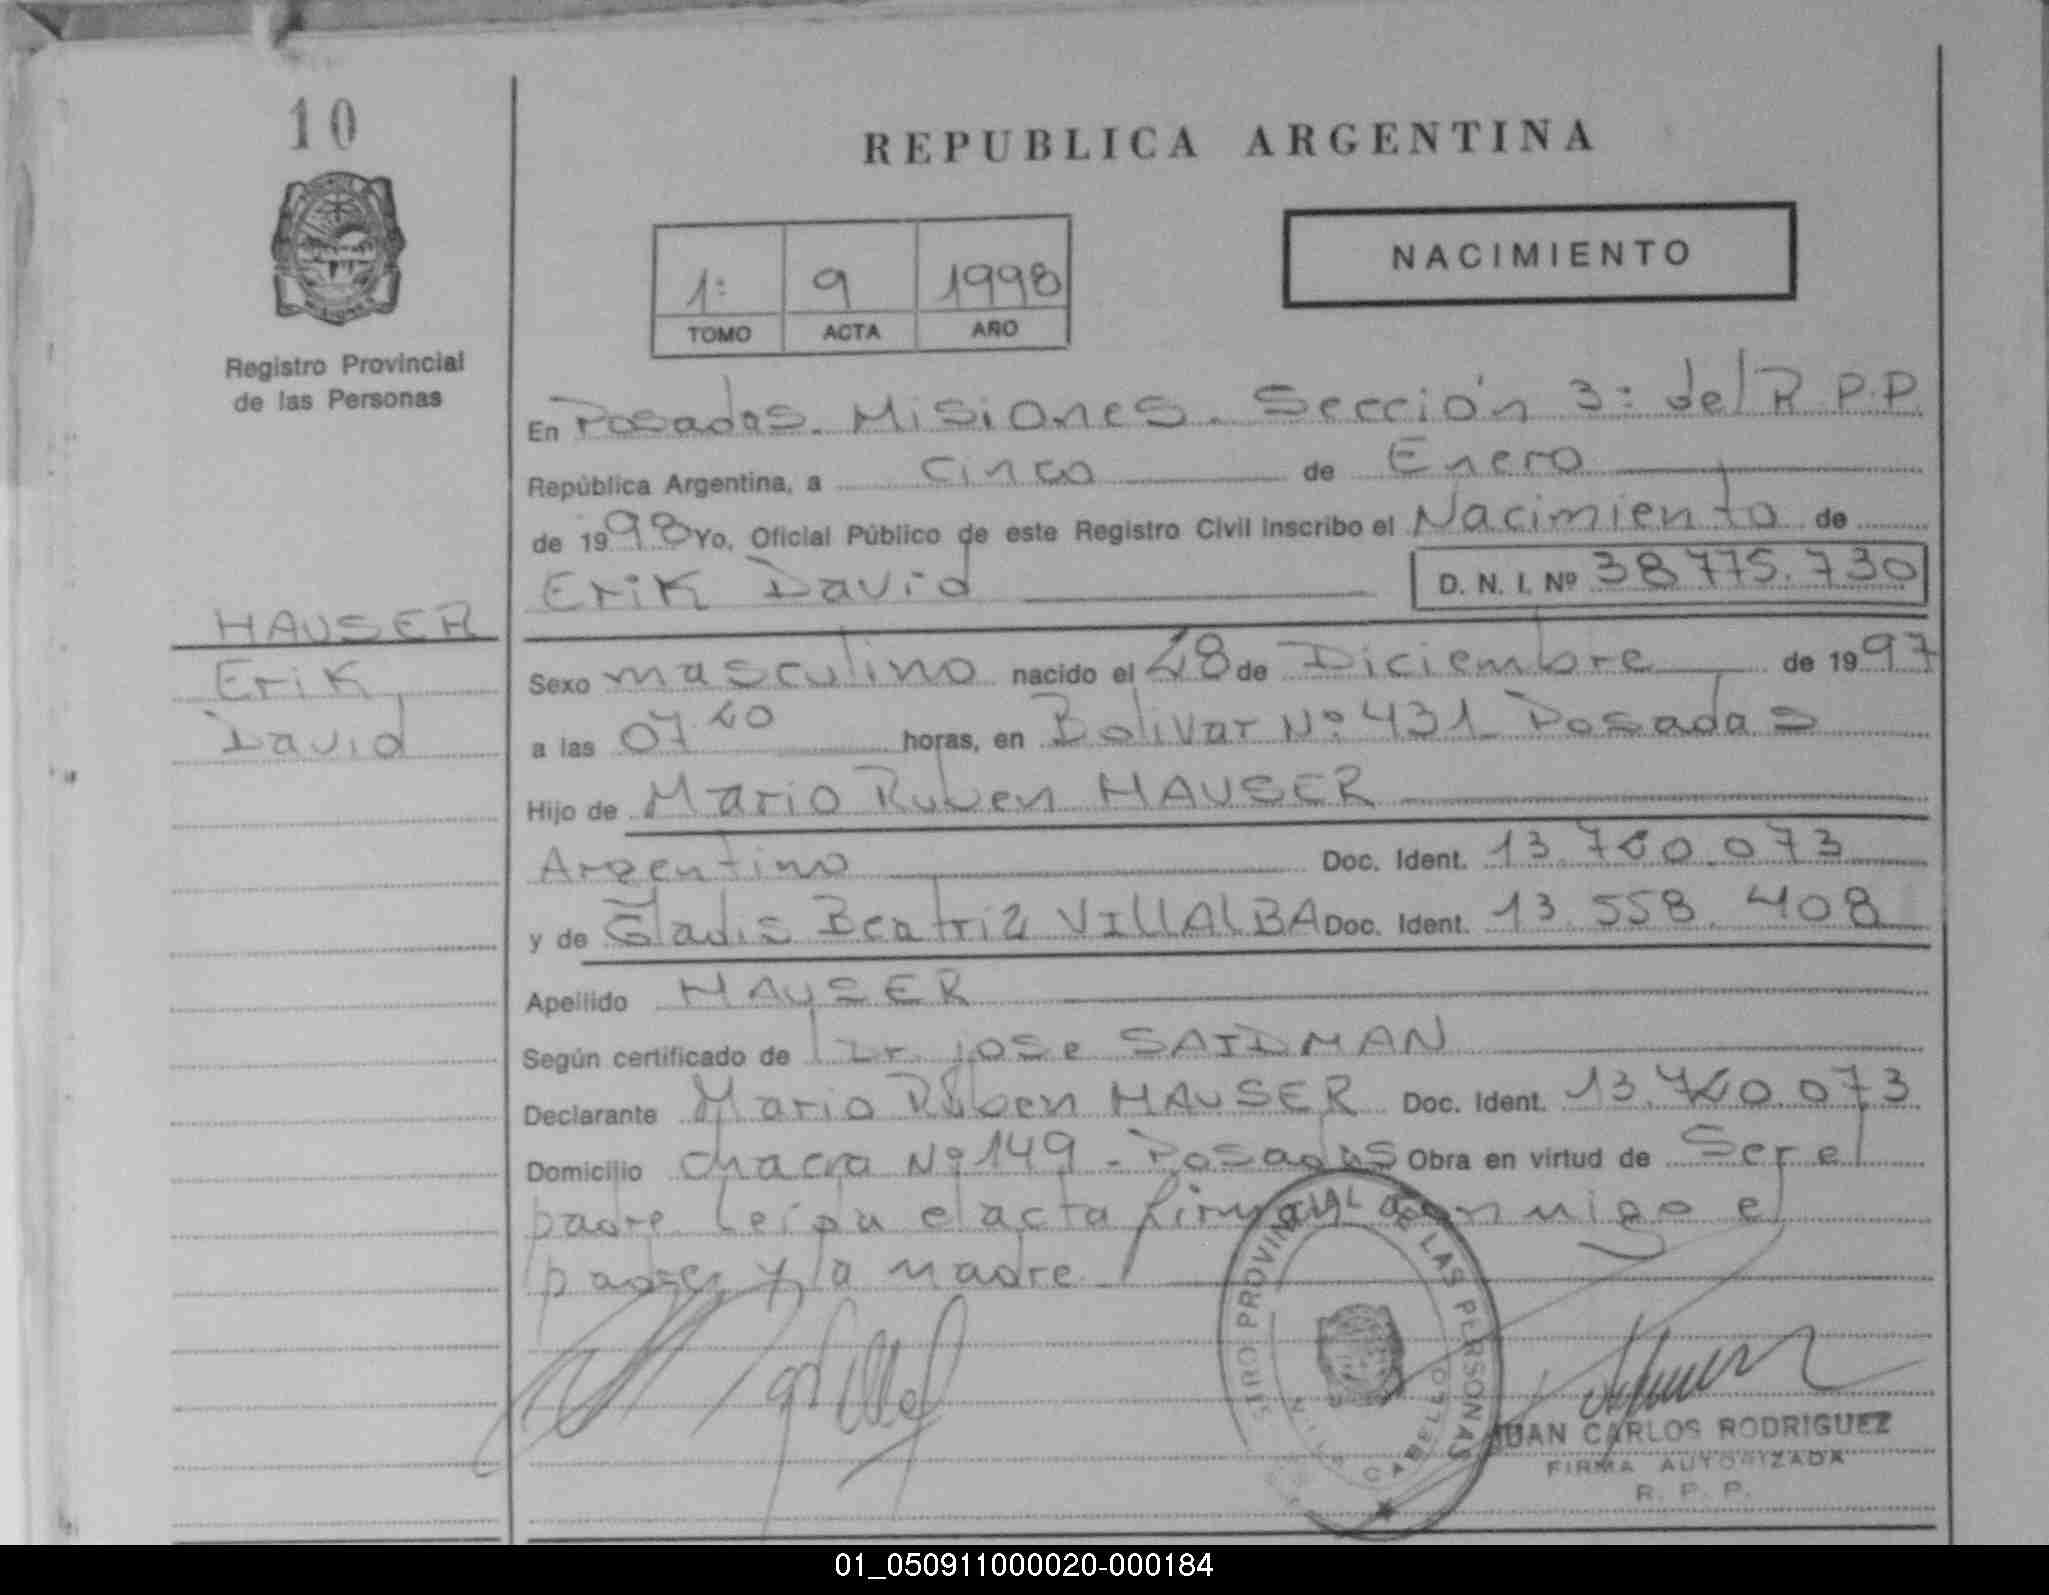 10
REPUBLICA ARGENTINA
NACIMIENTO
1: 9 1998
TOMO ACTA AÑO
Registro Provincial
de las Personas
En Posadas. Misiones. Sección 3: del R.P.P.
República Argentina, a cinco de Enero
de 1998 Yo, Oficial Público de este Registro Civil Inscribo el Nacimiento de
Erik David D. N. I. Nº 38.775.730
HAUSER
Erik
David
Sexo masculino nacido el 28 de Diciembre de 1997
a las 07 horas, en Bolivar Nº 431 Posadas
Hijo de Mario Ruben HAUSER
Argentino Doc. Ident. 13.760.073
y de Gladis Beatriz VIllAlBA Doc. Ident. 13.558.408
Apellido HAUSER
Según certificado de Dr. jose SAIDMAN
Declarante Mario Ruben HAUSER Doc. Ident. 073
Domicilio chacra Nº 149 - Posadas Obra en virtud de Ser el
padre Leida el acta firma conmigo el
padre y la madre
PROVINCIAL DE LAS PERSONAS
CABELLO
JUAN CARLOS RODRIGUEZ
FIRMA AUTORIZADA
R. P. P.
01_050911000020-000184